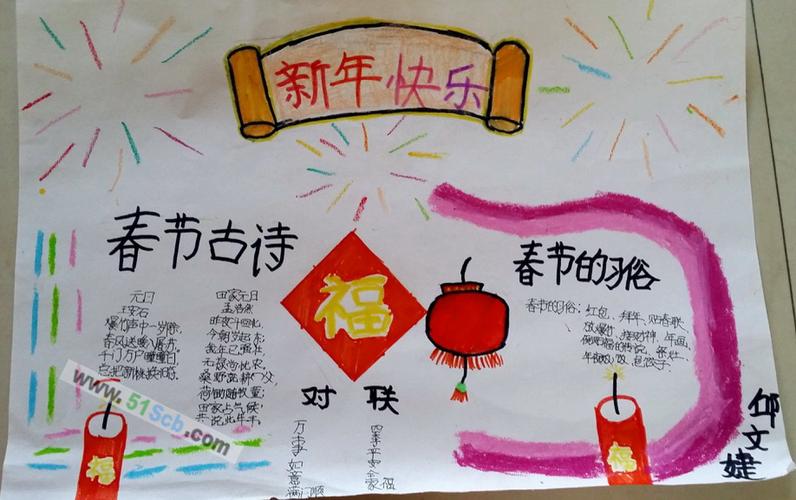 新年快乐
春节古诗
元日
王安石
爆竹声中一岁除，
春风送暖入屠苏，
千门万户曈曈日，
总把新桃换旧符。
田家元日
孟浩然
昨夜斗回北，
今朝岁起东；
我年已强壮，
无禄尚忧农。
桑野就耕父，
荷锄随牧童；
田家占气候，
共说此年丰。
福
对联
万事如意满
四季平安全家福
春节的习俗
春节的习俗：红包、拜年、贴春联、
放爆竹、接财神、年画、
福的传说、祭灶、
包饺子。
福
福
邱文婕
www.51Scb.com